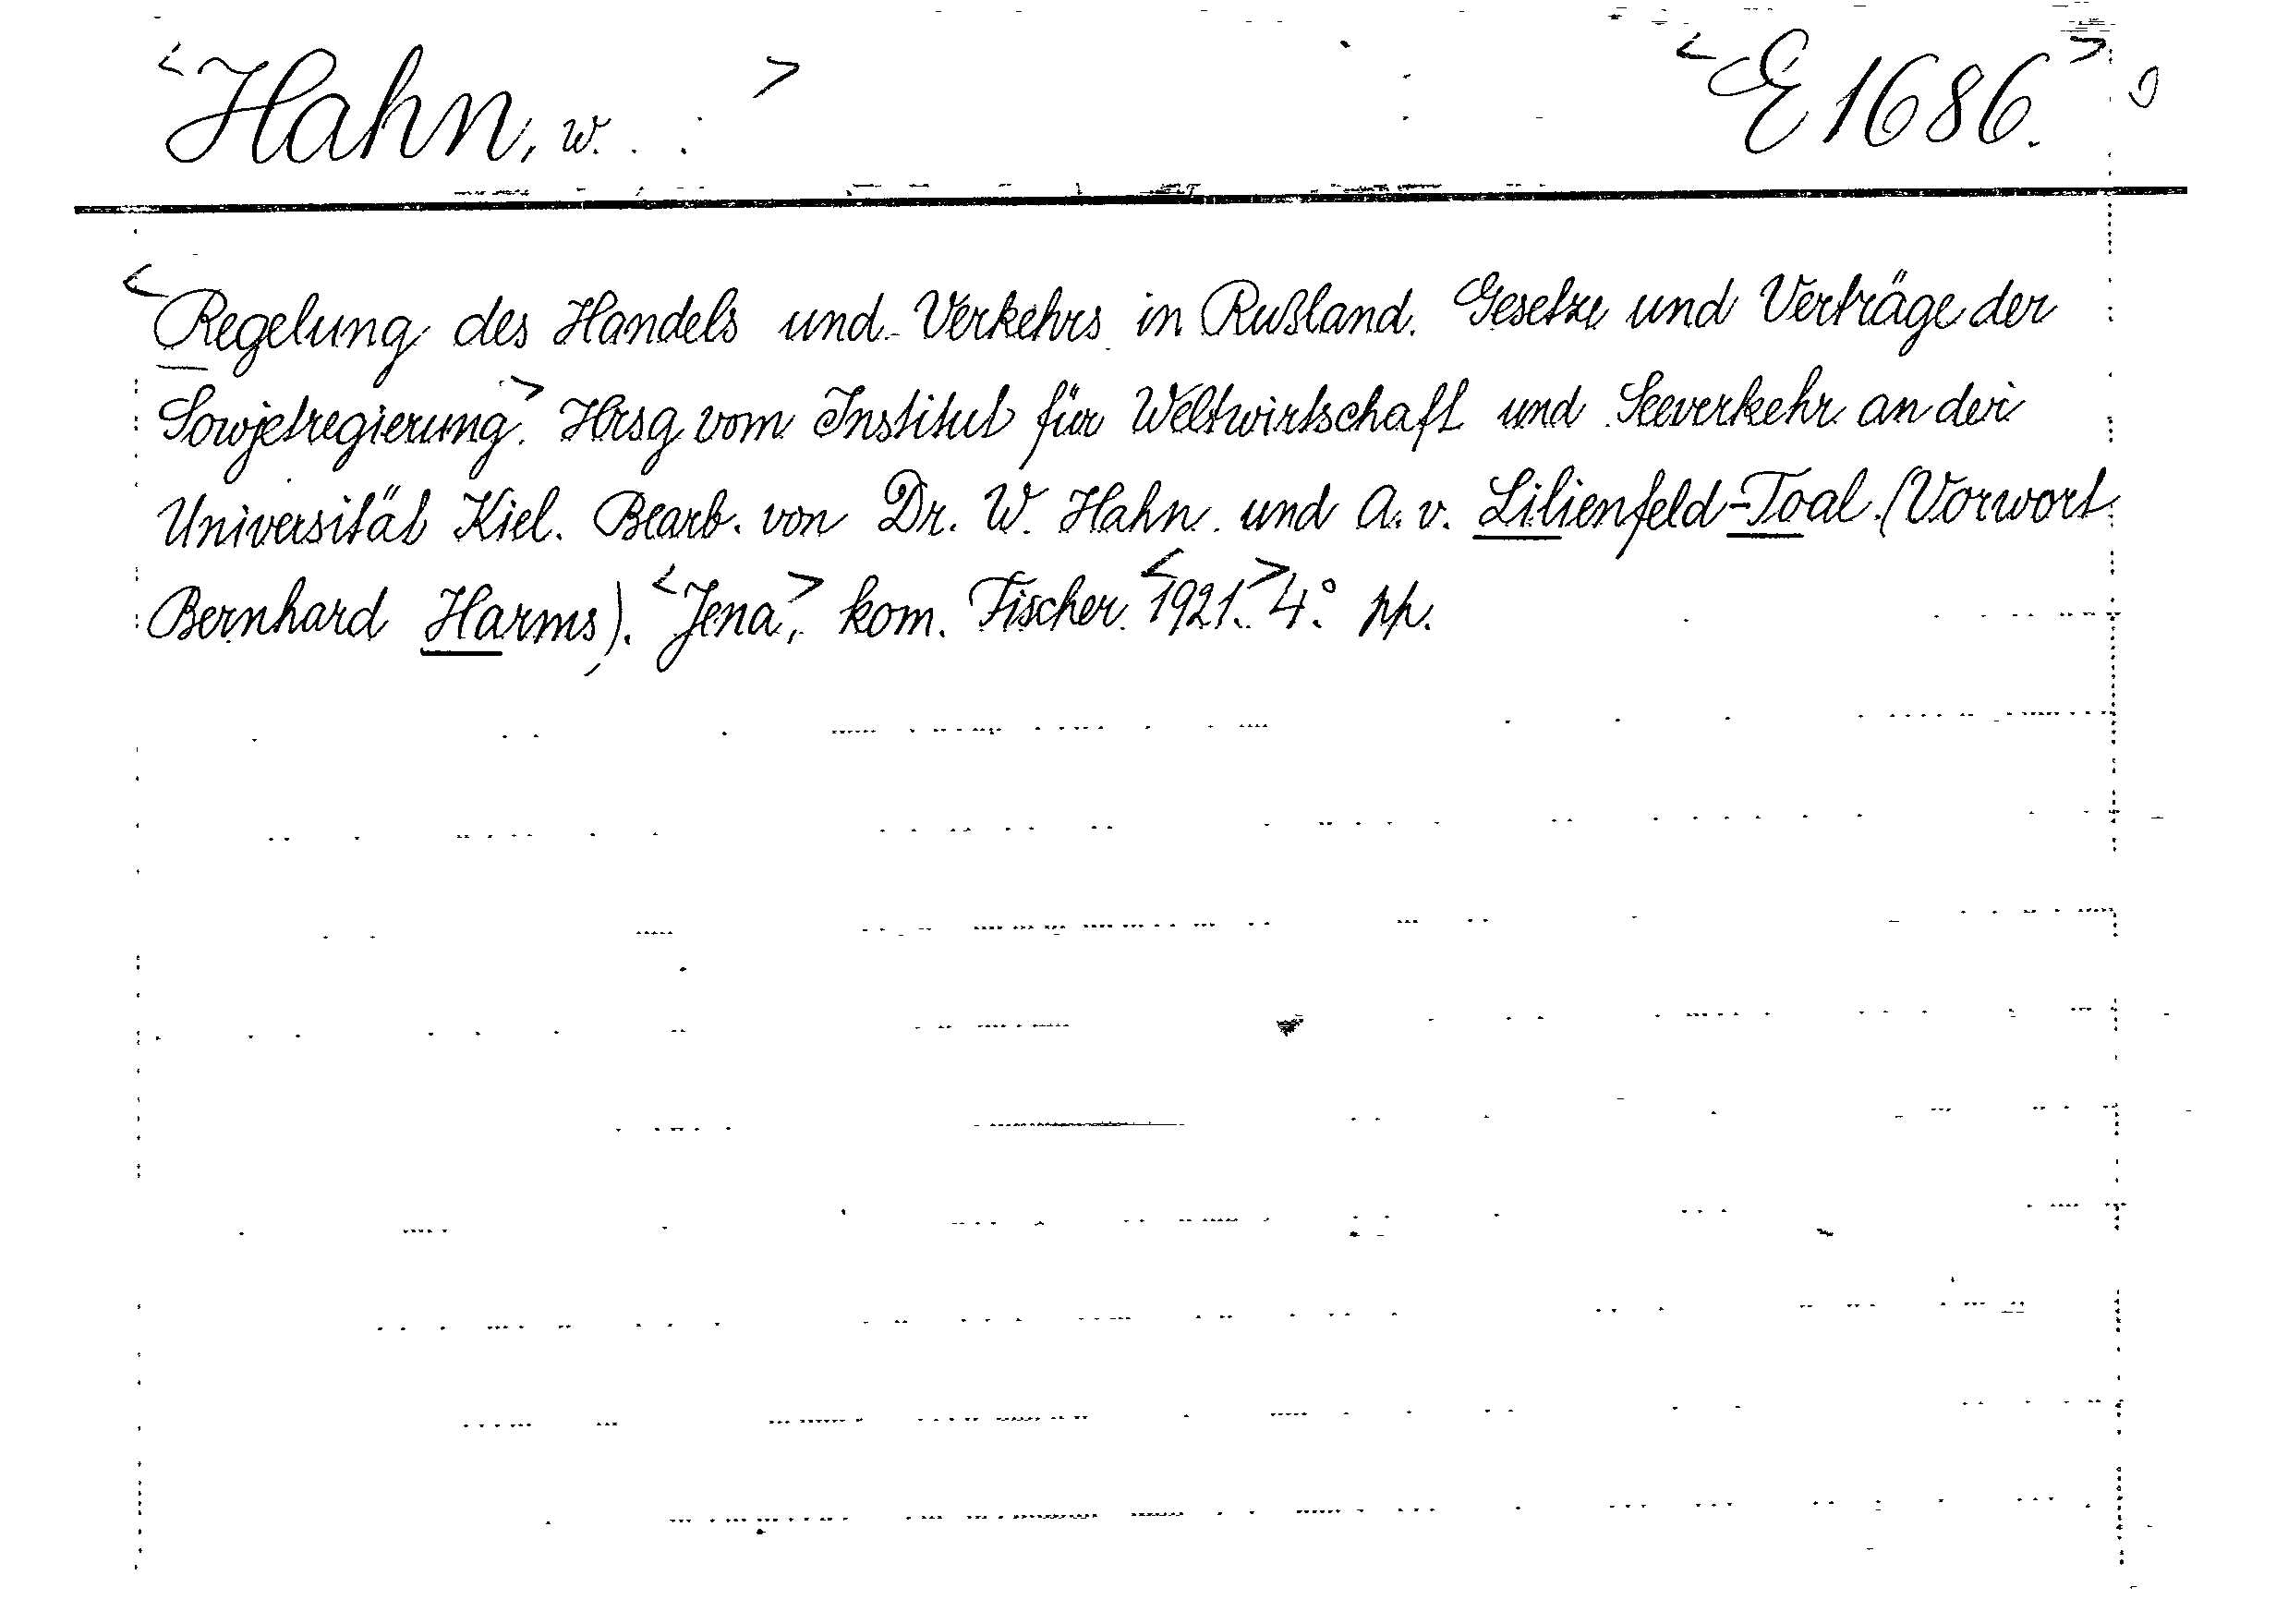 <Hahn, W. > <E 1686.>
<Regelung des Handels und Verkehrs in Rußland. Gesetze und Verträge der
Sowjetregierung.> Hrsg vom Institut für Weltwirtschaft und Seeverkehr an der
Universität Kiel. Bearb. von Dr. W. Hahn und A. v. Lilienfeld-Toal. (Vorwort
Bernhard Harms). <Jena>, kom. Fischer <1921.> 4° pp.